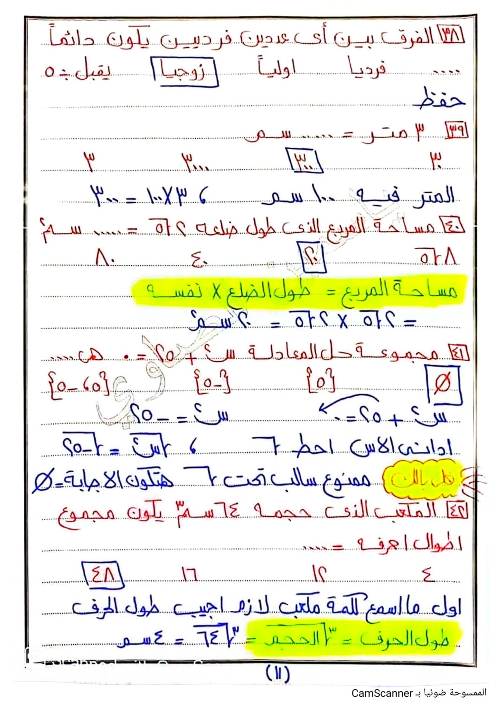 ٣٨ الفرق بين أى عددين فرديين يكون دائماً
.... فرديا اولياً زوجيا يقبل ÷ ٥
حفظ
٣٩ ٣ متر = ..... سم
٣٠ ٣٠٠ ٣٠٠٠ ٣
المتر فيه ١٠٠ سم ، ٣×١٠٠ = ٣٠٠
٤٠ مساحة المربع الذى طول ضلعه ٢√٥ = ..... سم²
٨√٥ ٢٠ ٤٠ ٨٠
مساحة المربع = طول الضلع × نفسه
= ٢√٥ × ٢√٥ = ٢٠ سم²
٤١ مجموعة حل المعادلة س² + ٢٥ = ٠ هى ....
∅ {٥} {-٥} {٥،-٥}
س² + ٢٥ = ٠ س² = -٢٥
ادانى الاس احط √ ، √س² = √-٢٥
ممنوع سالب تحت √ هتكون الاجابة = ∅
٤٢ المكعب الذى حجمه ٦٤ سم³ يكون مجموع
اطوال احرفه = ....
٤ ١٢ ١٦ ٤٨
اول ما اسمع كلمة مكعب لازم اجيب طول الحرف
طول الحرف = ∛الحجم = ∛٦٤ = ٤ سم
(١١)
الممسوحة ضوئيا بـ CamScanner